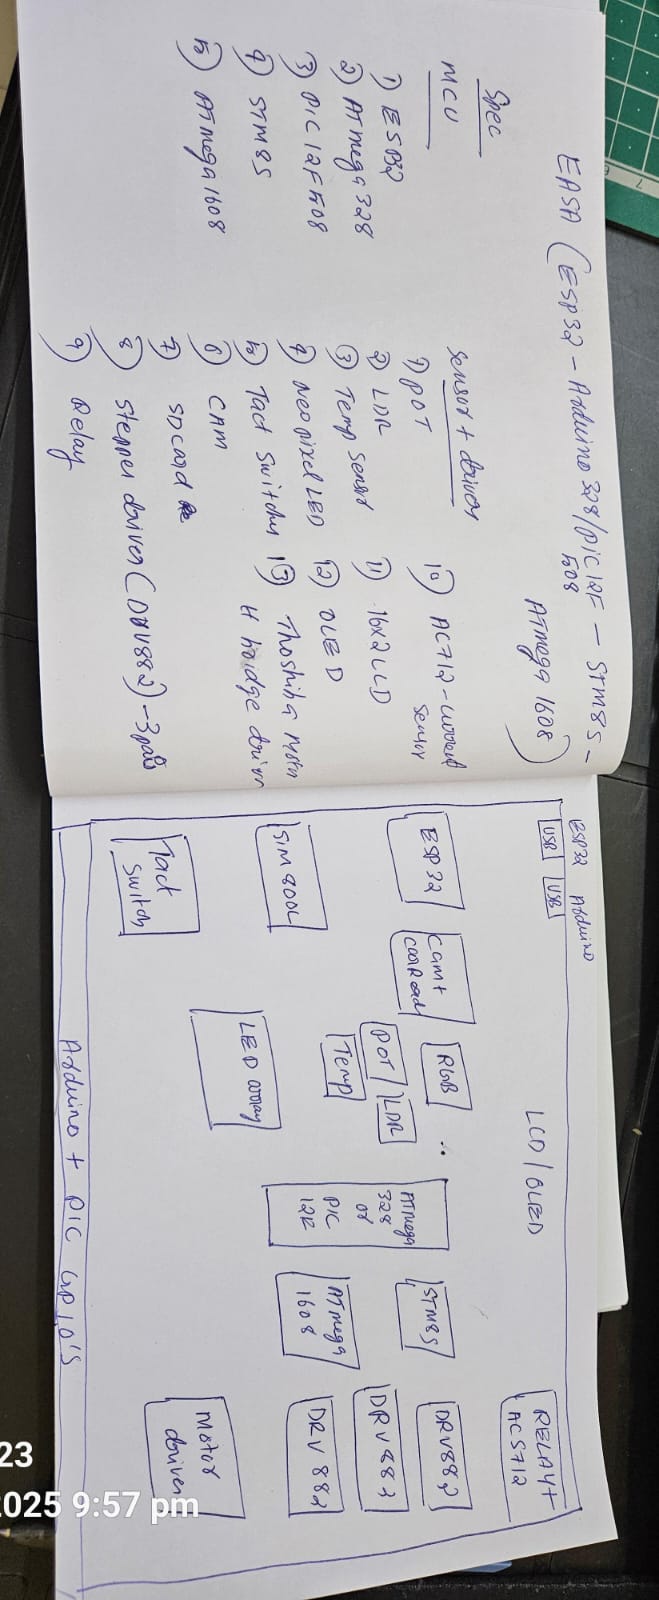 EASA (ESP32 - Arduino 328/PIC12F - STM8S -
508
ATmega 1608)
Spec
MCU
1) ESP32
2) ATmega 328
3) PIC12F508
4) STM8S
5) ATmega 1608
Sensor + driver
1) POT
2) LDR
3) Temp Sensor
4) Neo pixel LED
5) Tact Switches
6) CAM
7) SD card
8) Stepper driver (DRV882) - 3 pairs
9) Relay
10) AC712 - current
Sensor
11) 16x2 LCD
12) OLED
13) Thoshiba Motor
H bridge driver
ESP32 Arduino
USB USB
LCD/OLED
RELAY +
ACS712
ESP32
Cam +
RGB
..
POT/ LDR
Temp
ATmega
328
or
PIC
12F
STM8S
DRV882
DRV882
DRV 882
SIM 800L
LED array
ATmega
1608
Tact
Switch
Motor
driver
Arduino + PIC GPIO'S
23
025 9:57 pm